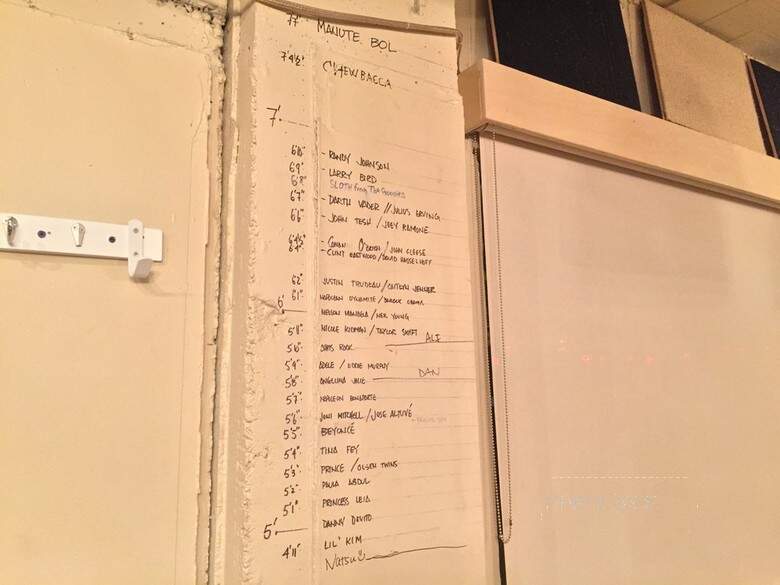 7'7" MANUTE BOL
7'4½" CHEWBACCA
7'
6'10" - RANDY JOHNSON
6'9" - LARRY BIRD
6'8" SLOTH from The Goonies
6'7" - DARTH VADER // JULIUS ERVING
6'6" - JOHN TESH / JOEY RAMONE
6'4½" - CONAN O'BRIEN / JOHN CLEESE
6'4" - CLINT EASTWOOD / DAVID HASSELHOFF
6'2" JUSTIN TRUDEAU / CAITLYN JENNER
6'1" NAPOLEAN DYNAMITE / BARACK OBAMA
6' NELSON MANDELA / NEIL YOUNG
5'11" NICOLE KIDMAN / TAYLOR SWIFT
ALI
5'10" CHRIS ROCK
5'9" ADELE / EDDIE MURPHY
DAN
5'8" ANGELINA JOLIE
5'7" NAPOLEON BONAPARTE
5'6" JONI MITCHELL / JOSE ALTUVÉ
5'5" BEYONCÉ
5'4" TINA FEY
5'3" PRINCE / OLSEN TWINS
5'2" PAULA ABDUL
5'1" PRINCESS LEIA
5' DANNY DEVITO
4'11" LIL' KIM
Natsu